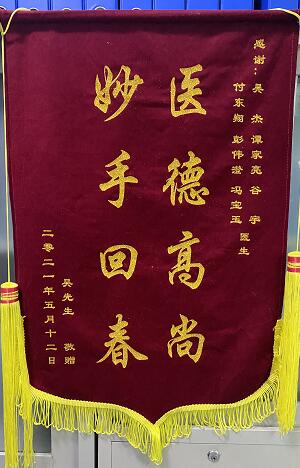 感谢：吴杰 谭家亮 谷宇
付东翔 彭伟滢 冯宝玉 医生
医德高尚
妙手回春
吴先生 敬赠
二零二一年五月十二日